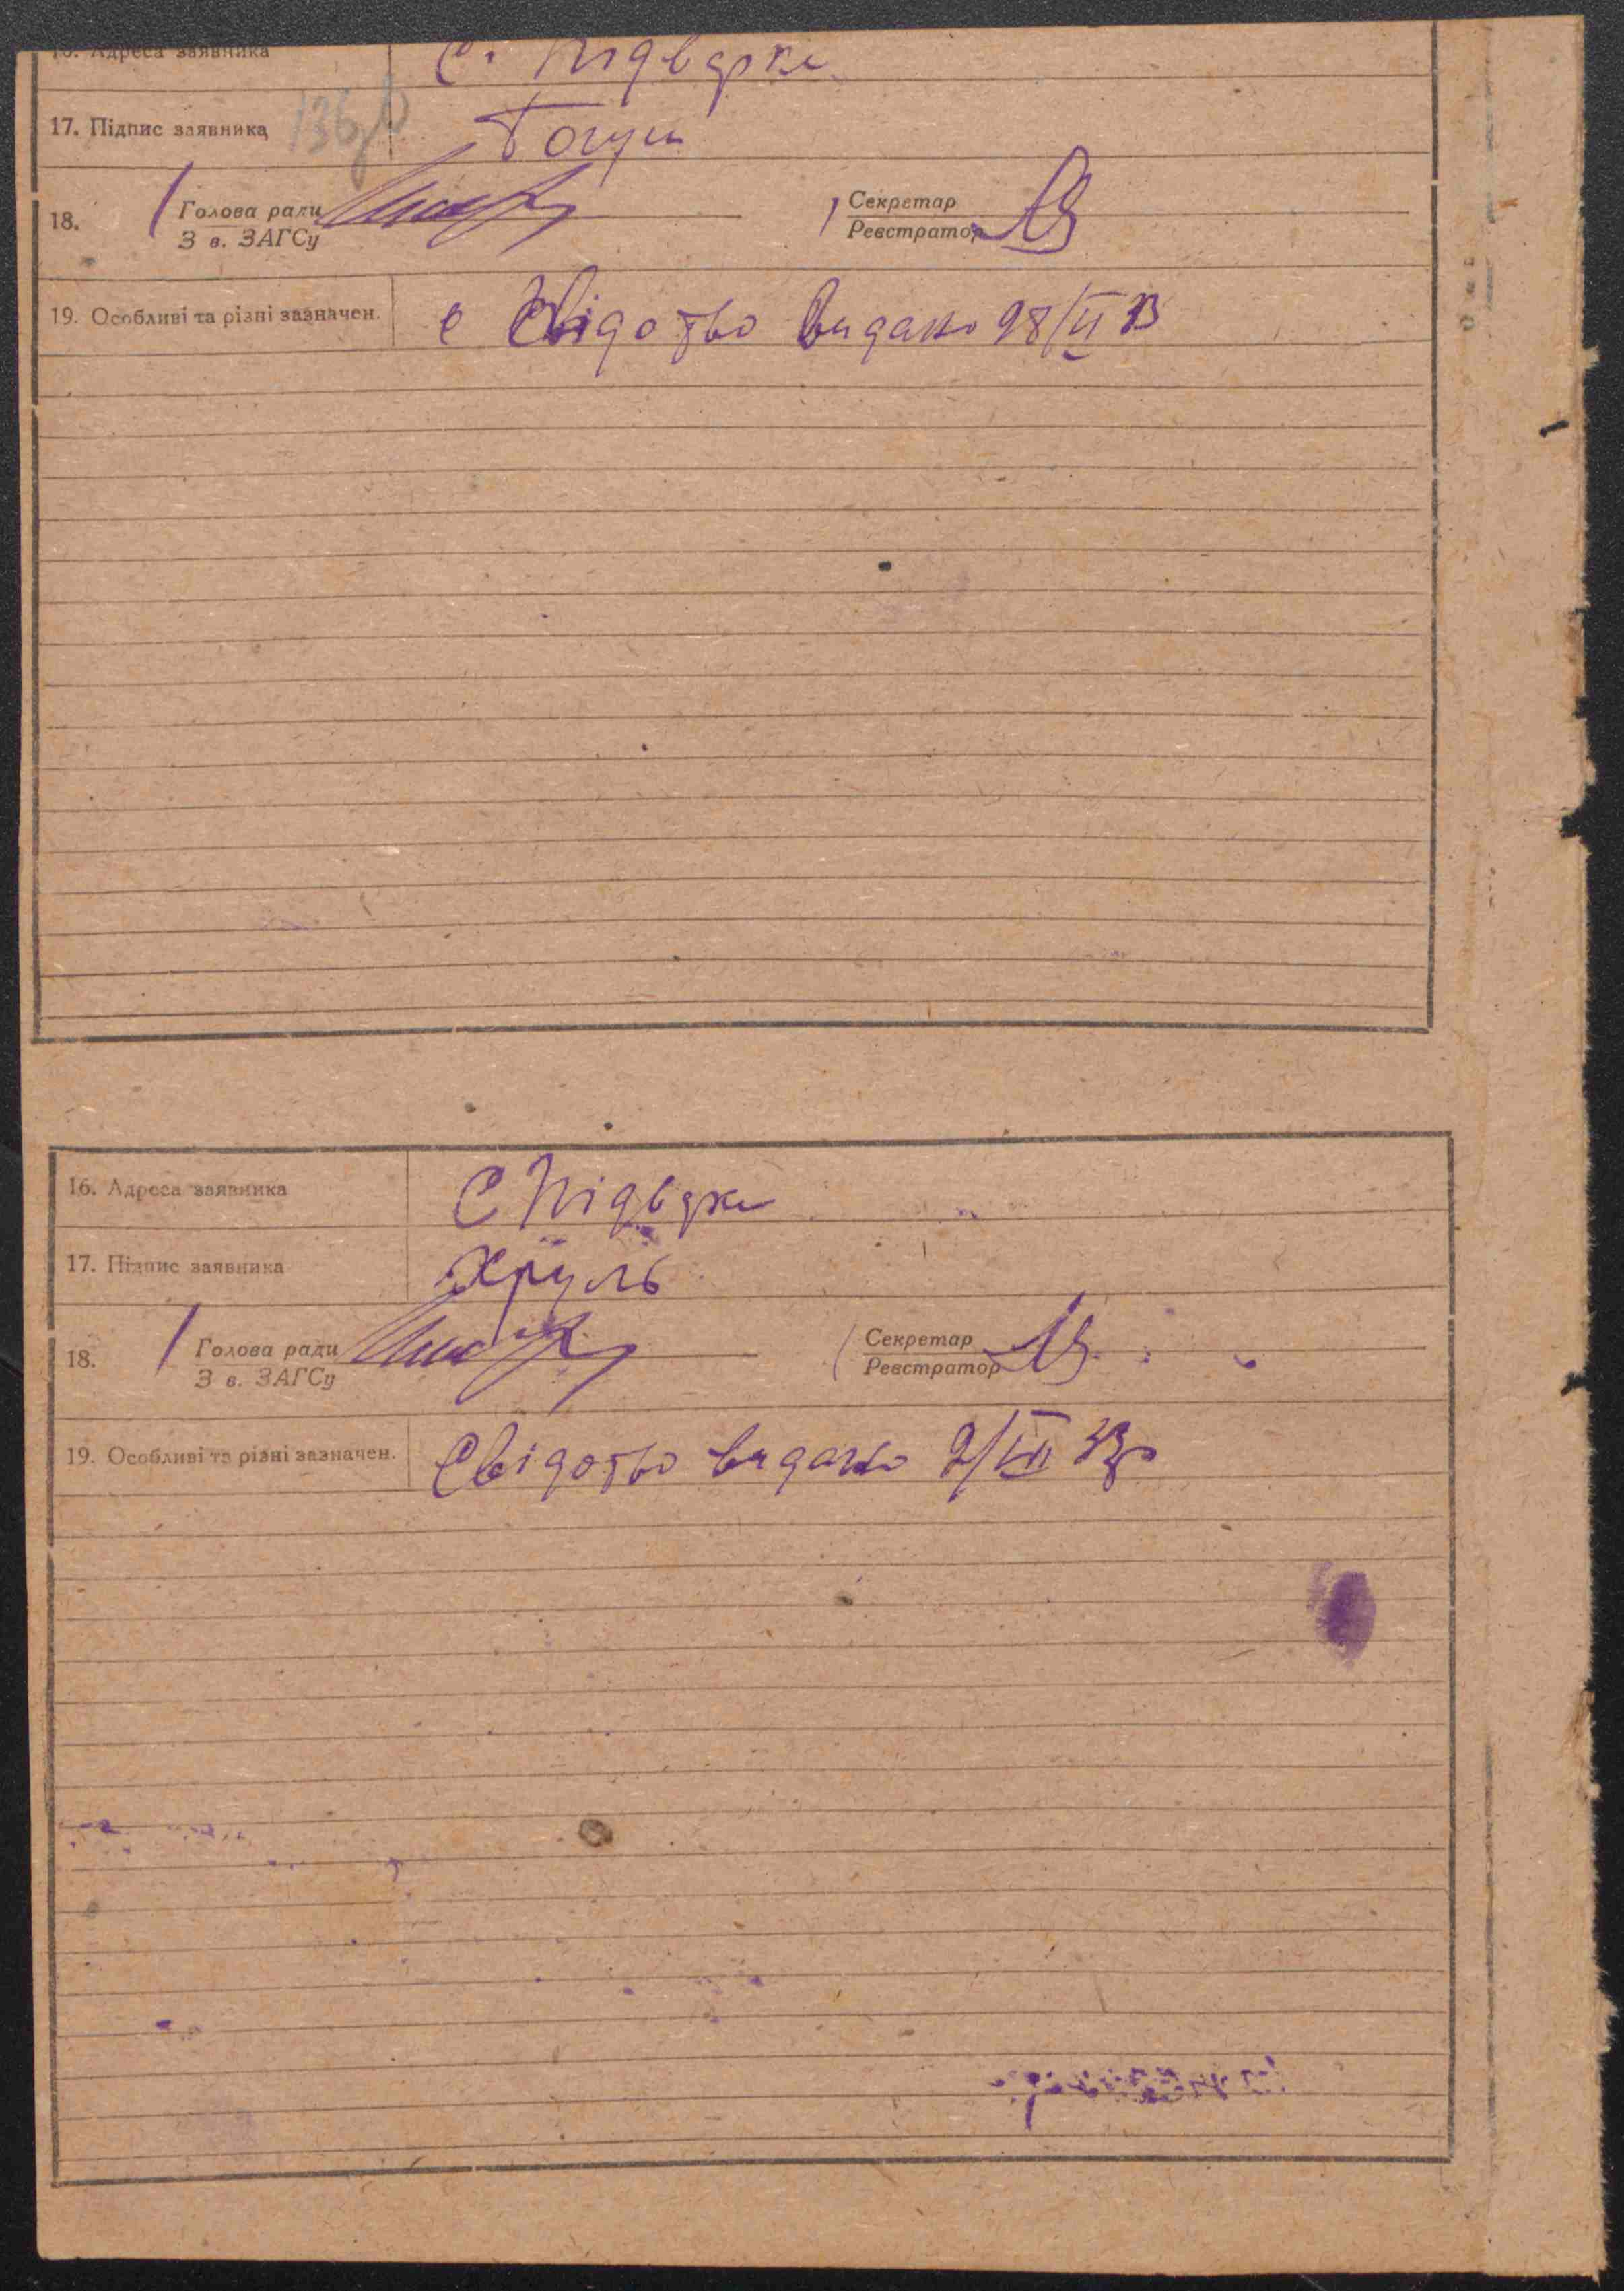 16. Адреса заявника С. Підварки
17. Підпис заявника 136
18. Голова ради Секретар
З в. ЗАГСу Реєстратор
19. Особливі та різні зазначен. Свідотво видано 28/II 33
16. Адреса заявника С Підварки
17. Підпис заявника Хруль
18. Голова ради Секретар
З в. ЗАГСу Реєстратор
19. Особливі та різні зазначен. Свідотво видано 2/III 33р